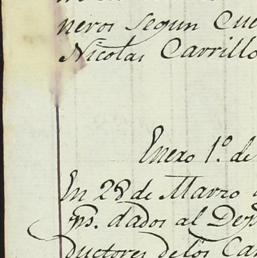 neros segun Cue
Nicolas Carrillo
Enero 1º. de
En 28 de Marzo
ps. dados al Dep
ductores de los Car